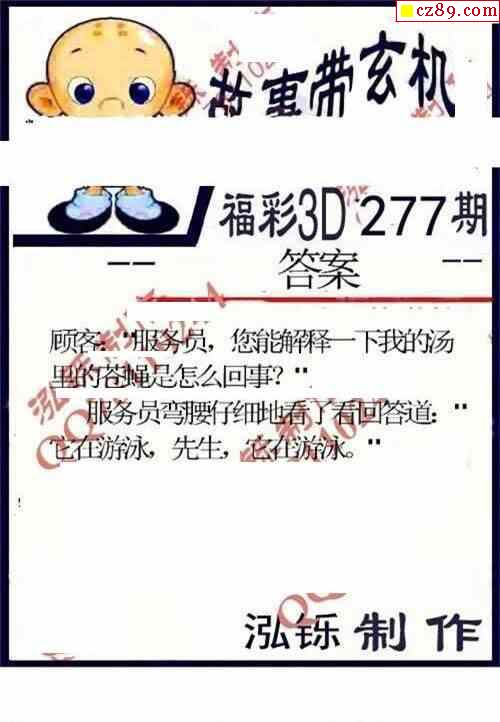 cz89.com
故事带玄机
福彩3D 277期
-- 答案 --
顾客:"服务员,您能解释一下我的汤
里的苍蝇是怎么回事?"
服务员弯腰仔细地看了看回答道:"
它在游泳,先生,它在游泳。"
!
泓铄制作